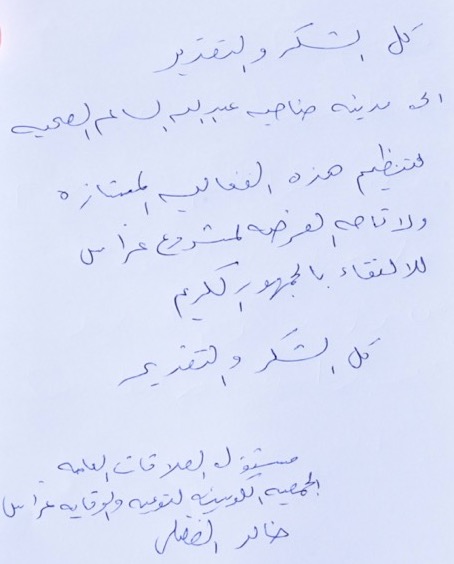 كل الشكر والتقدير
الى مدينه ضاحيه عبدالله السالم الصحيه
لتنظيم هذه الفعاليه الممتازه
ولاتاحه الفرصه لمشروع غراس
للالتقاء بالجمهور الكريم
كل الشكر والتقدير
مسئول العلاقات العامه
الجمعيه الكويتيه لتوعيه والوقايه غراس
خالد الفضلي